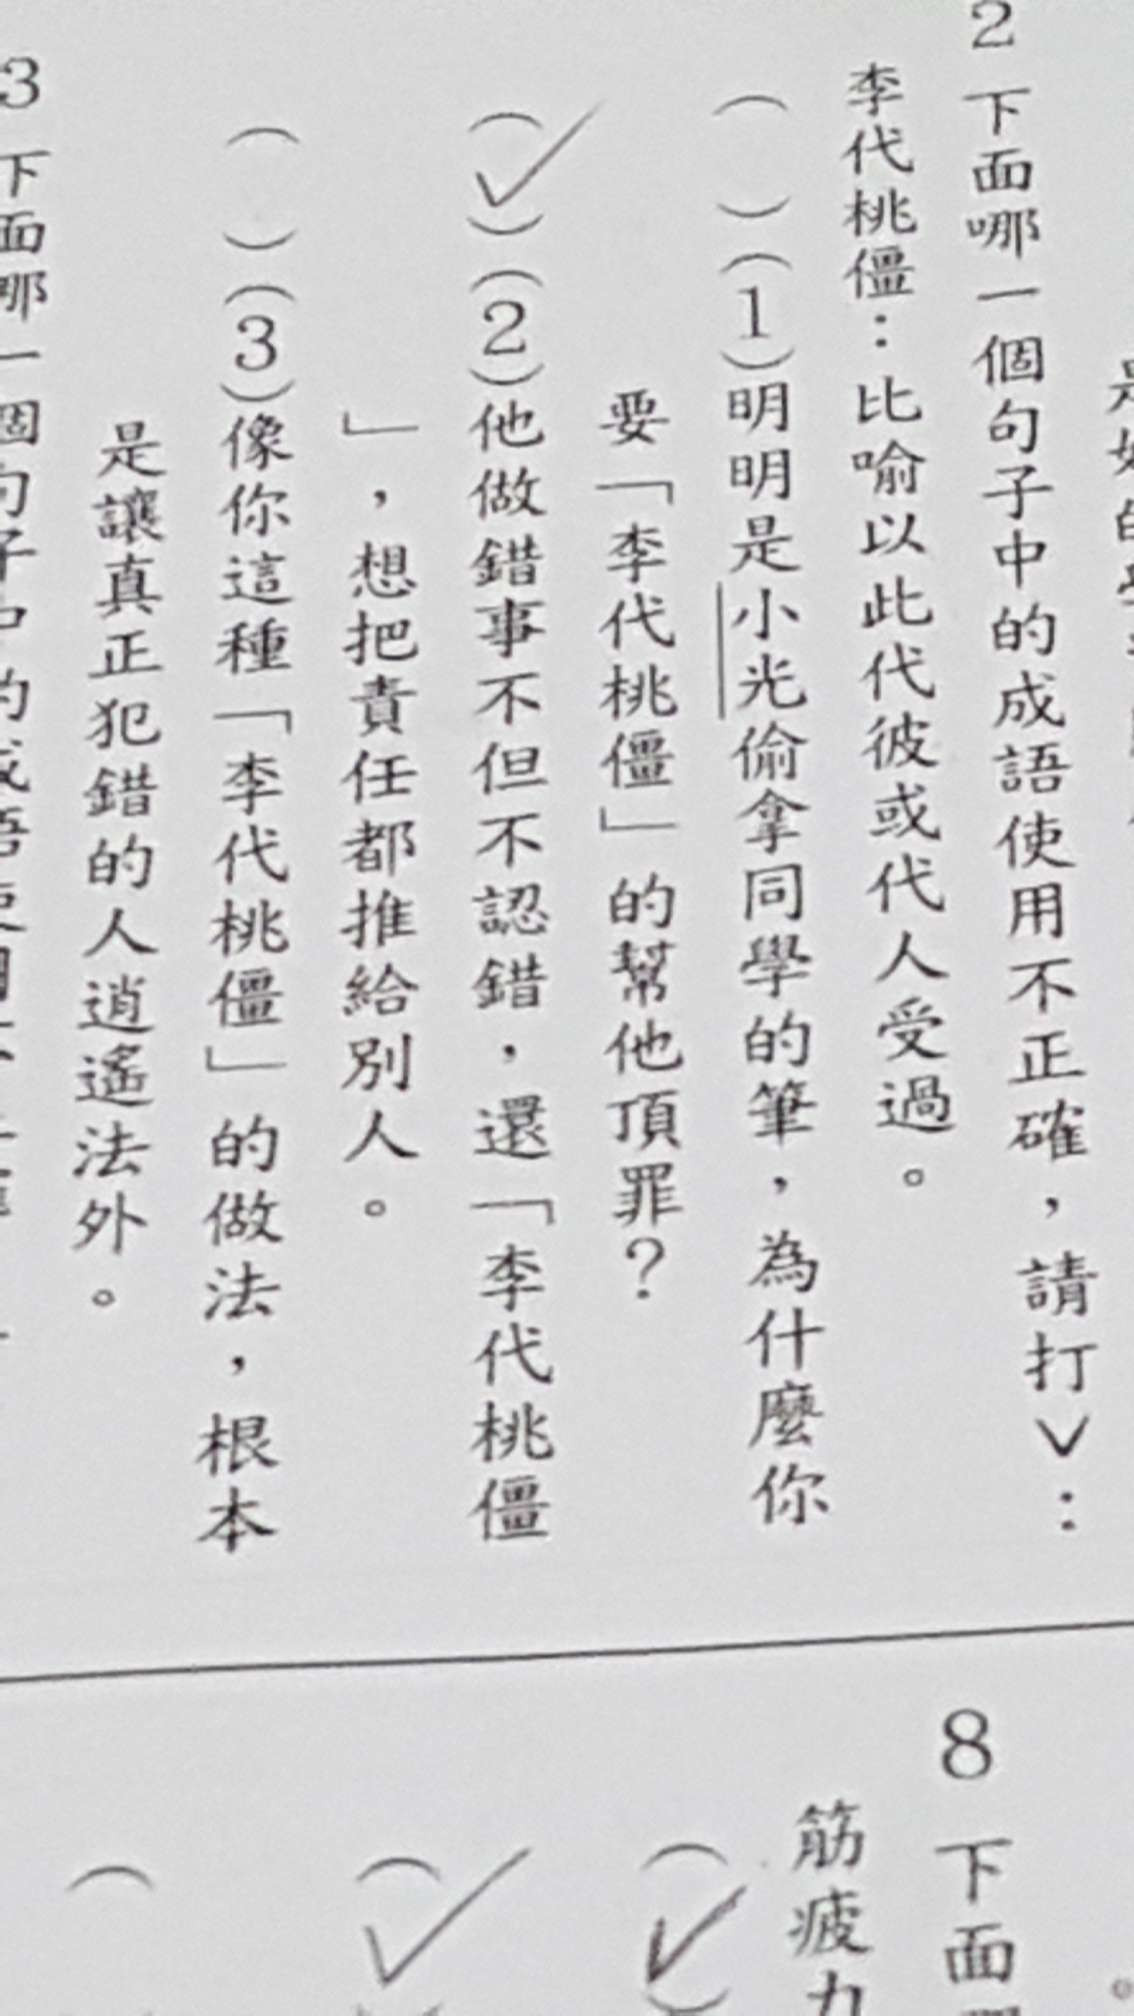 2 下面哪一個句子中的成語使用不正確，請打✓：
李代桃僵：比喻以此代彼或代人受過。
（ ）（1）明明是小光偷拿同學的筆，為什麼你
要「李代桃僵」的幫他頂罪？
（✓）（2）他做錯事不但不認錯，還「李代桃僵
」，想把責任都推給別人。
（ ）（3）像你這種「李代桃僵」的做法，根本
是讓真正犯錯的人逍遙法外。
3 下面哪一個句子中的成語使用
8 下面
筋疲力
（✓）
（✓
（